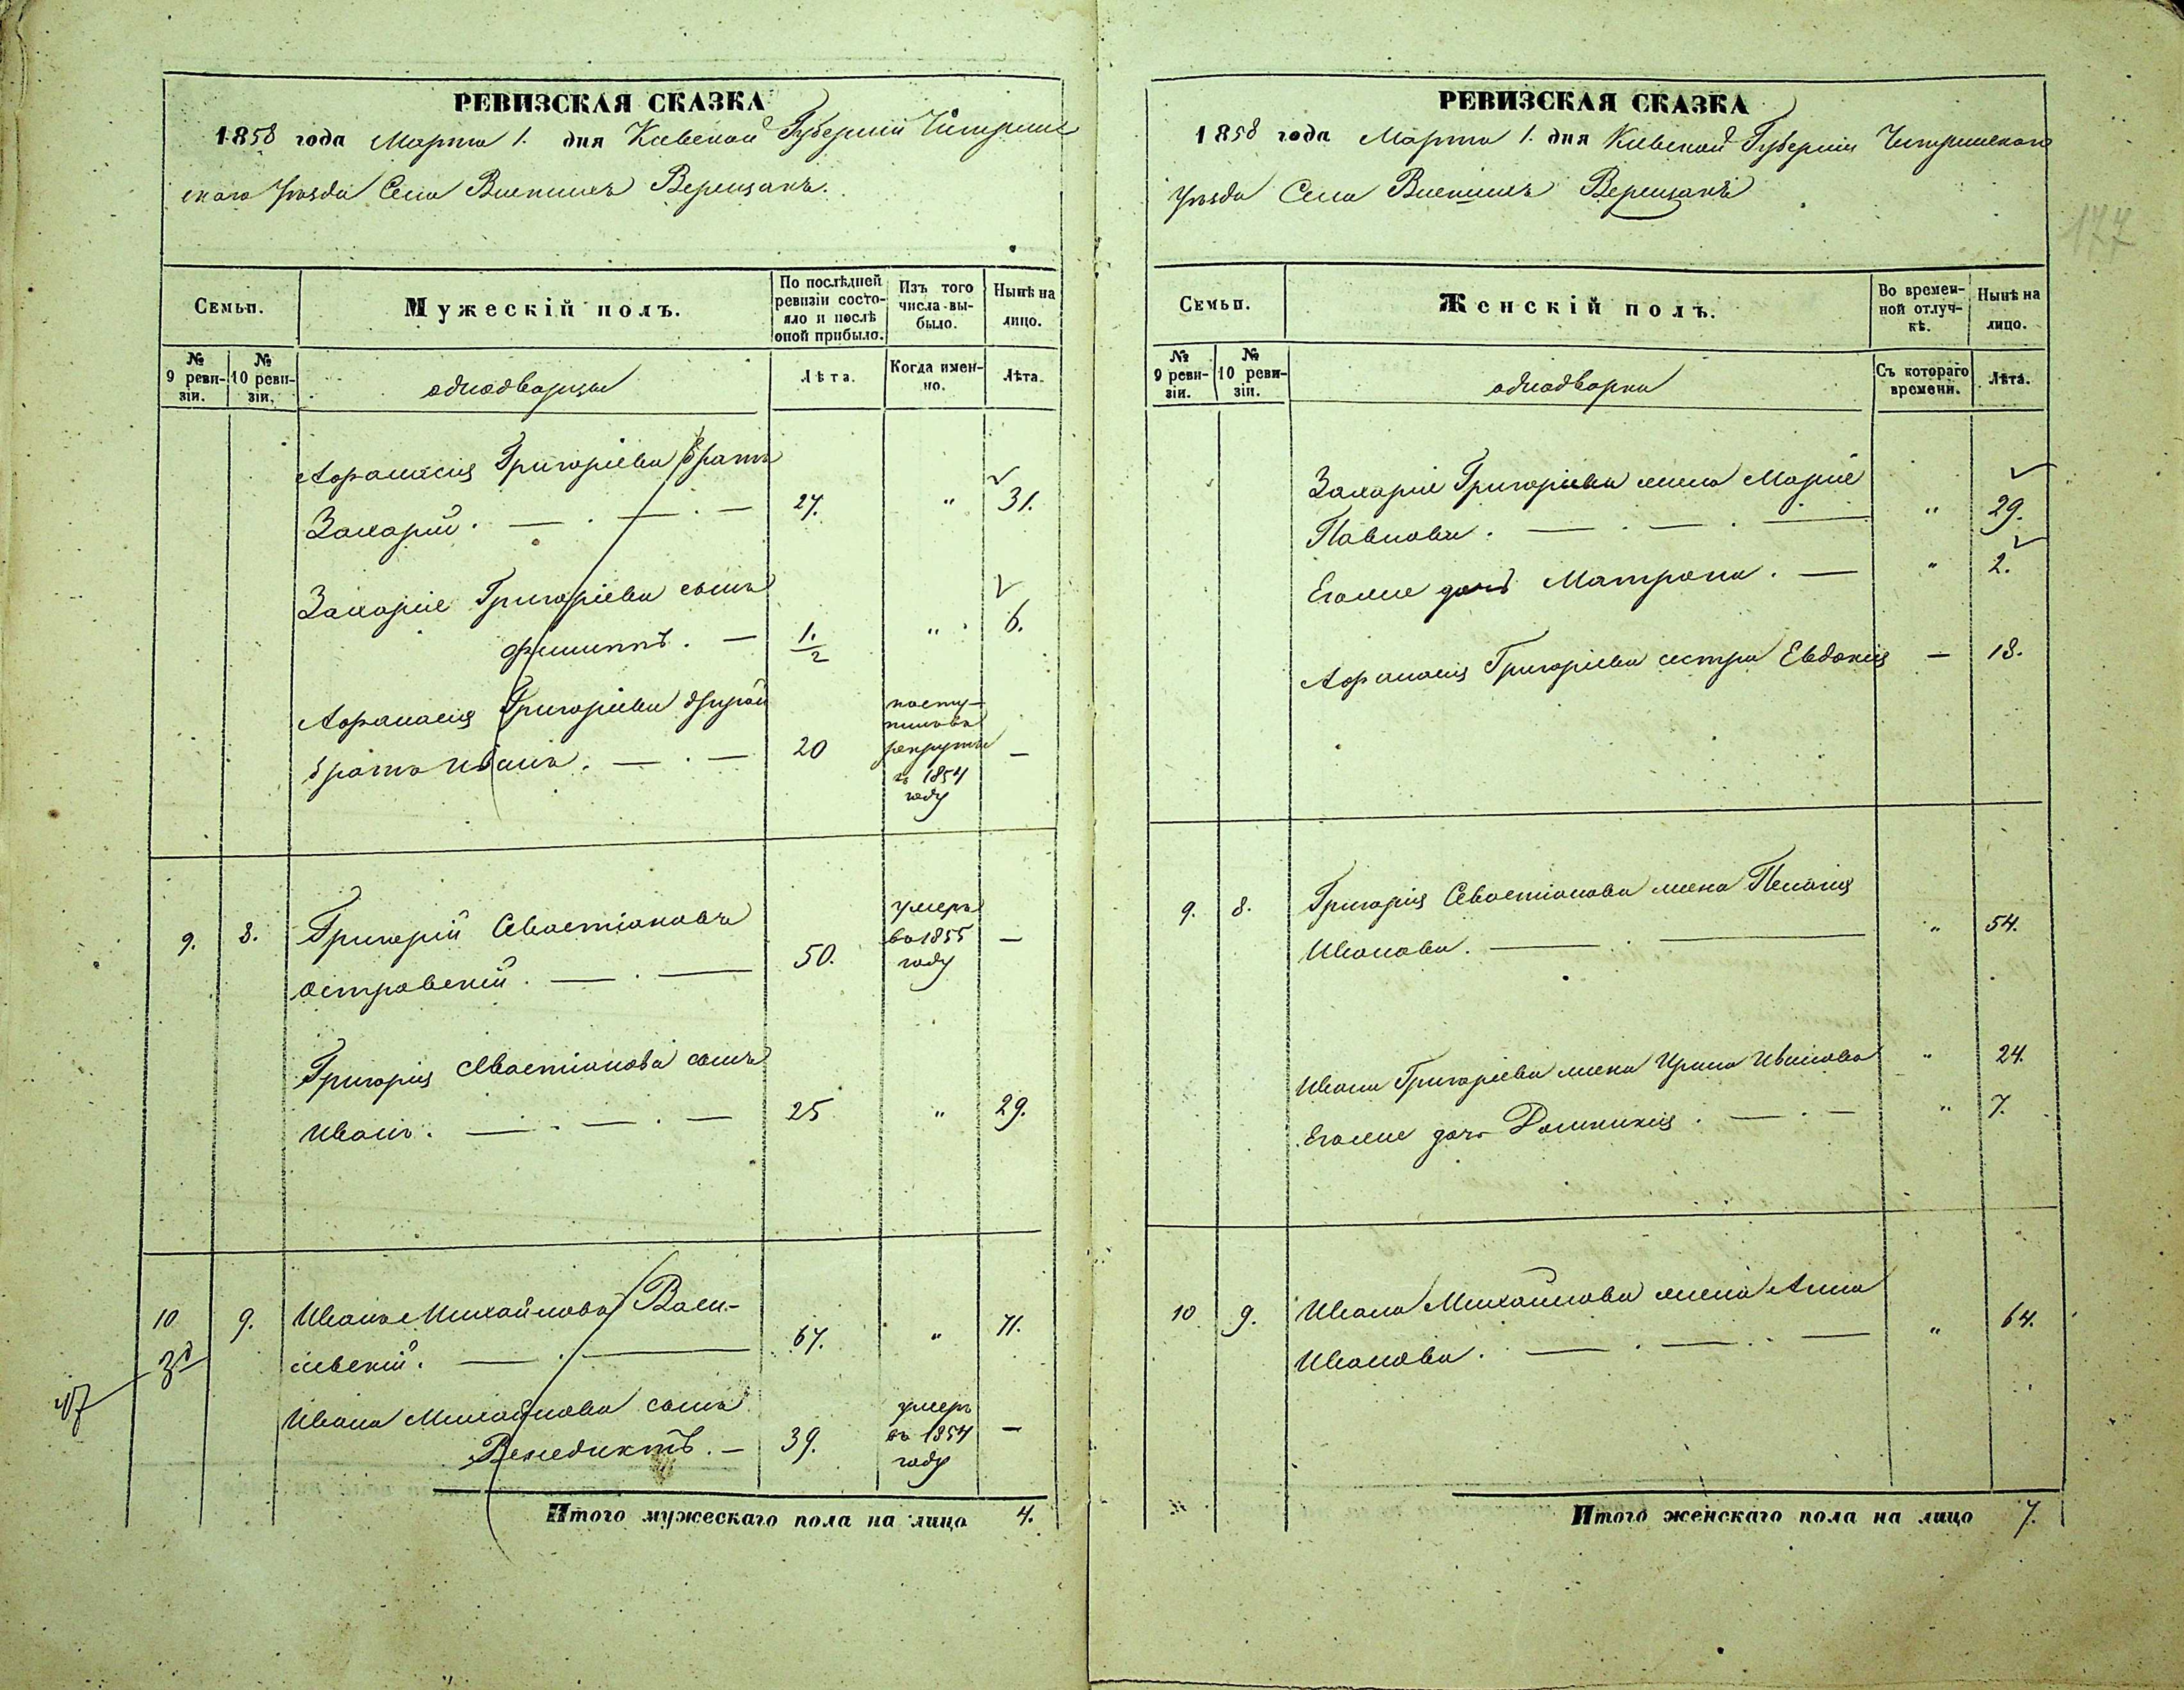 РЕВИЗСКАЯ СКАЗКА
1858 года Марта 1. дня Киевской Губернии Чигрин-
скаго Уѣзда Села Верещакъ.
Семьи.
Мужескій полъ.
По послѣдней ревизіи состо-яло и послѣ оной прибыло.
Изъ того числа вы-было.
Нынѣ на лицо.
№ 9 реви-зіи.
№ 10 реви-зіи.
однодворцы
Лѣта.
Когда имен-но.
Лѣта.
Афанасія Григорьева братъ
Захарій. — . — . — 27. " 31.
Захарія Григорьева сынъ
Филиппъ. — 1/2 " 6.
Афанасія Григорьева другой
братъ Иванъ. — . — 20 —
посту-
пилъ въ
рекруты
въ 1854
году
9. 8. Григорій Севастіановъ
Островскій. — . — 50. —
умеръ
въ 1855
году
Григорія Севастіанова сынъ
Иванъ. — . — . — 25 " 29.
10 9. Иванъ Михайловъ Васи-
левскій. — . — 67. " 71.
Ивана Михайлова сынъ
Венедиктъ. — 39. —
умеръ
въ 1854
году
Итого мужескаго пола на лицо 4.
РЕВИЗСКАЯ СКАЗКА
1858 года Марта 1. дня Киевской Губерніи Чигринскаго
Уѣзда Села Верещакъ
177
Семьи.
Женскій полъ.
Во времен-ной отлуч-кѣ.
Нынѣ на лицо.
№ 9 реви-зіи.
№ 10 реви-зіи.
однодворки
Съ котораго времени.
Лѣта.
Захарія Григорьева жена Марія
Павлова. — . — . — " 29.
Егоже дочь Матрона. — " 2.
Афанасія Григорьева сестра Евдокія — 18.
9. 8. Григорія Севастіанова жена Пелагія
Иванова. — . — " 54.
Ивана Григорьева жена Ирина Иванова " 24.
Егоже дочь Домникія. — . — " 7.
10 9. Ивана Михайлова жена Анна
Иванова. — . — . — " 64.
Итого женскаго пола на лицо 7.